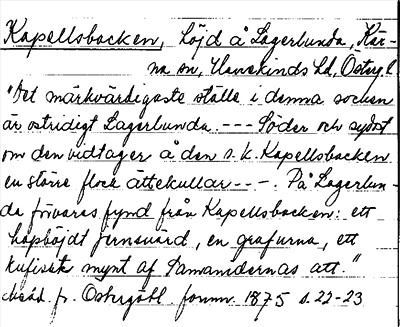 Kapellsbacken, höjd å Lagerlunda, Kär-
na sn, Hanekinds hd, Östergl.
"Det märkvärdigaste ställe i denna socken
är ostridigt Lagerlunda. --- Söder och sydost
om den vidtager å den s.k. Kapellsbacken
en större flock ättekullar ---. På Lagerlun-
da förvaras fynd från Kapellsbacken: ett
hopböjdt jernsvärd, en grafurna, ett
kufiskt mynt af Samanidernas ätt."
Medd. fr. Östergötl. fornm. 1875 s. 22-23